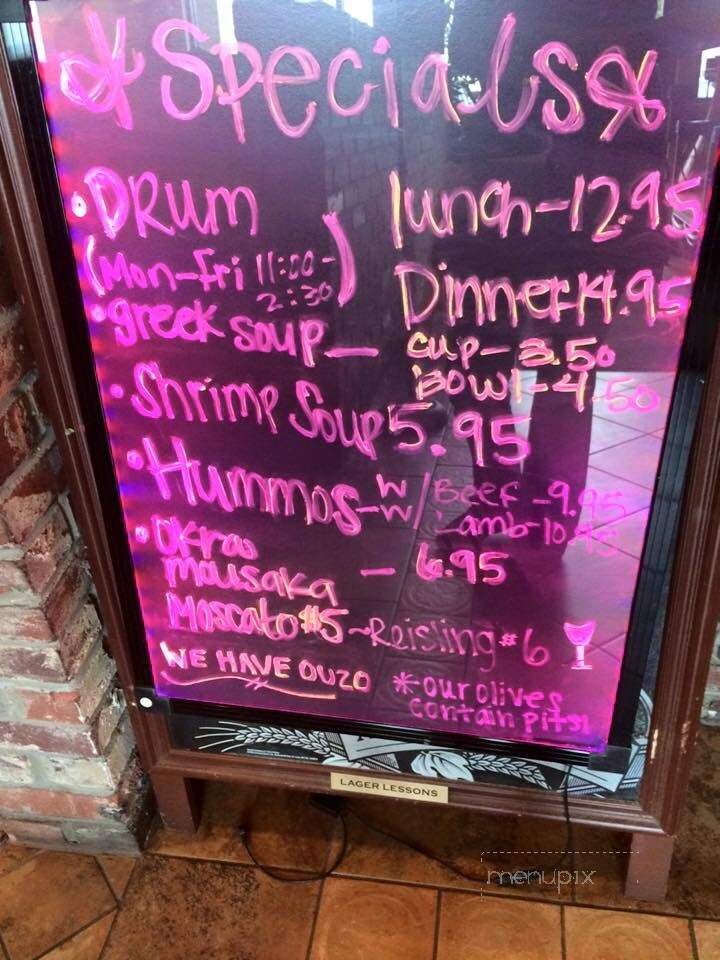 *Specials*
• DRUM lunch-12.95
(Mon-Fri 11:00-2:30) Dinner-14.95
• greek soup — cup-3.50
Bowl-4.50
• Shrimp Soup 5.95
• Hummos-w/Beef-9.95
w/Lamb-10.95
• Okra
mousaka — 6.95
Moscato $5~Reisling #6
WE HAVE OUZO
*our olives
contain pits!
LAGER LESSONS
menupix